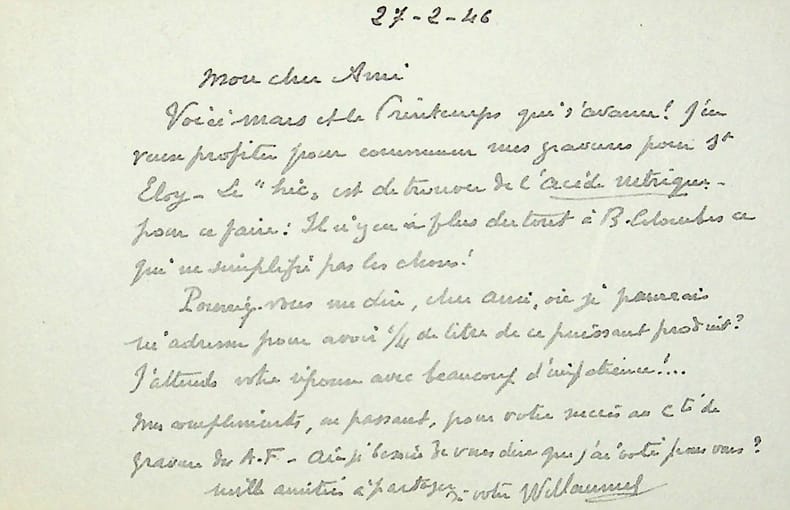 27-2-46
Mon cher Ami
Voici mars et le Printemps qui s'avance! J'en
veux profiter pour commencer mes gravures pour St
Eloy - Le "hic" est de trouver de l'acide nitrique -
pour ce faire! Il n'y en a plus du tout à B. Colombes ce
qui ne simplifie pas les choses!
Pourriez-vous me dire, cher ami, où je pourrais
m'adresser pour avoir 1/4 de litre de ce puissant produit?
J'attends votre réponse avec beaucoup d'impatience!...
Mes compliments, en passant, pour votre succès au Cté de
gravure des A.F - Ai-je besoin de vous dire que j'ai voté pour vous?
mille amitiés à partager de votre Willaumez